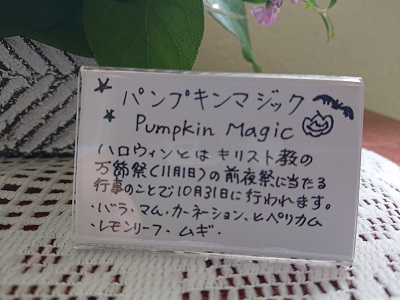 パンプキンマジック
Pumpkin Magic
ハロウィンとはキリスト教の
万節祭(11月1日)の前夜祭に当たる
行事のことで10月31日に行われます。
・バラ・マム・カーネーション、ヒペリカム
・レモンリーフ・ムギ・